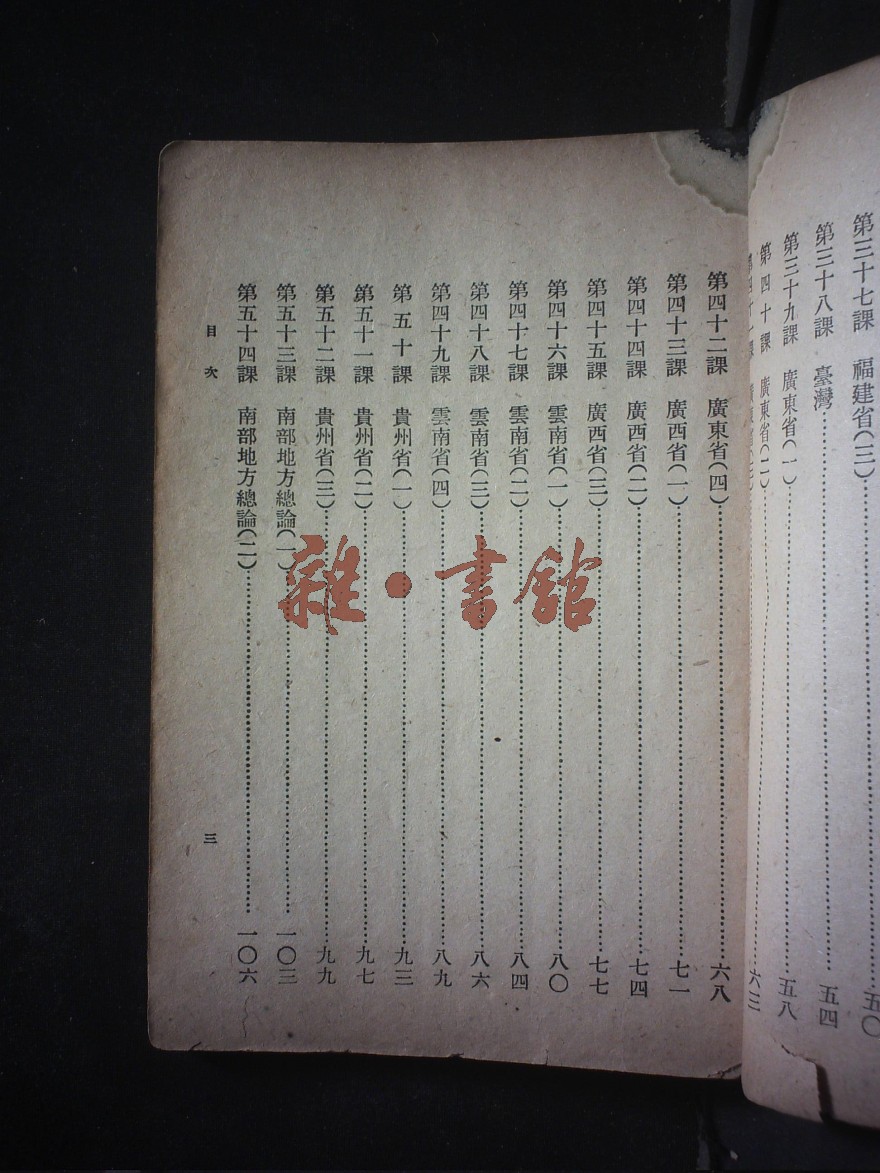 第三十七課　福建省(三)……五〇
第三十八課　臺灣……五四
第三十九課　廣東省(一)……五八
第四十課　廣東省(二)……
第四十二課　廣東省(四)……六八
第四十三課　廣西省(一)……七一
第四十四課　廣西省(二)……七四
第四十五課　廣西省(三)……七七
第四十六課　雲南省(一)……八〇
第四十七課　雲南省(二)……八四
第四十八課　雲南省(三)……八六
第四十九課　雲南省(四)……八九
第五十課　貴州省(一)……九三
第五十一課　貴州省(二)……九七
第五十二課　貴州省(三)……九九
第五十三課　南部地方總論(一)……一〇三
第五十四課　南部地方總論(二)……一〇六
目次
三
雜·書館